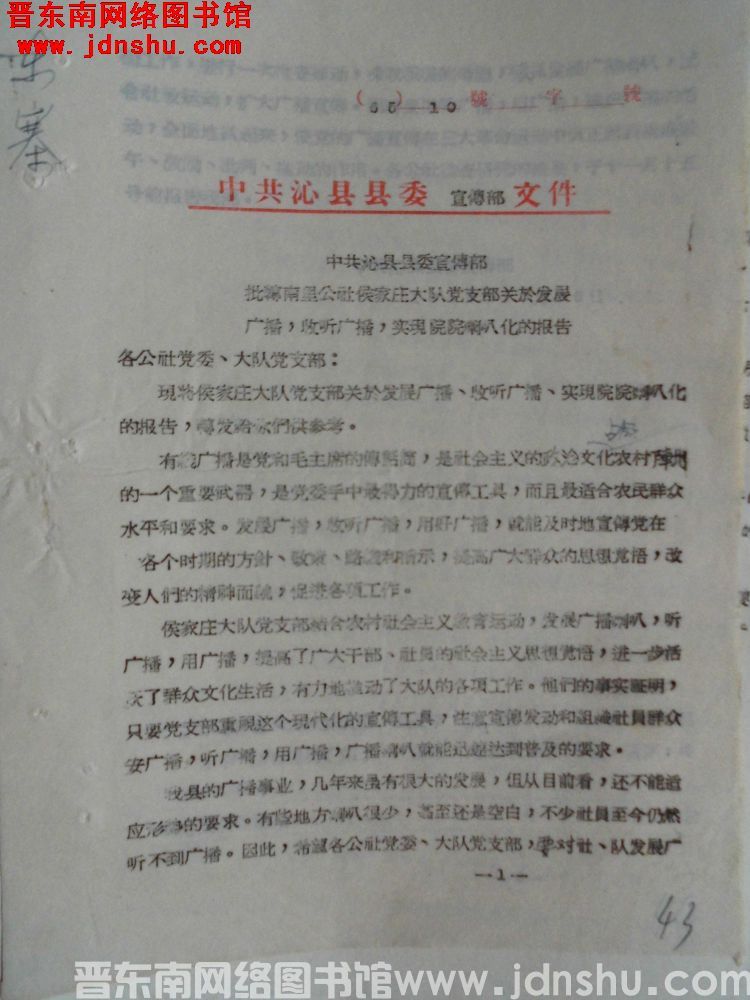 晋东南网络图书馆
www.jdnshu.com
（65）10號 字 號
寨
中共沁县县委 宣傳部 文件
中共沁县县委宣傳部
批轉南里公社侯家庄大队党支部关於发展
广播，收听广播，实現院院喇叭化的报告
各公社党委、大队党支部：
現将侯家庄大队党支部关於发展广播、收听广播、实現院院喇叭化
的报告，轉发给你們供参考。
有綫广播是党和毛主席的傳話筒，是社会主义的政治文化农村
的一个重要武器，是党委手中最得力的宣傳工具，而且最适合农民群众
水平和要求。发展广播，收听广播，用好广播，就能及时地宣傳党在
各个时期的方針、政策、路綫和指示，提高广大群众的思想觉悟，改
变人们的精神面貌，促进各項工作。
侯家庄大队党支部結合农村社会主义教育运动，发展广播喇叭，听
广播，用广播，提高了广大干部、社員的社会主义思想觉悟，进一步活
跃了群众文化生活，有力地推动了大队的各項工作。他們的事实証明，
只要党支部重視这个現代化的宣傳工具，注意宣傳发动和組織社員群众
安广播，听广播，用广播，广播喇叭就能迅速达到普及的要求。
我县的广播事业，几年来虽有很大的发展，但从目前看，还不能适
应形势的要求。有些地方喇叭很少，甚至还是空白，不少社員至今仍然
听不到广播。因此，希望各公社党委、大队党支部，要对社、队发展广
—1—
43
晋东南网络图书馆www.jdnshu.com